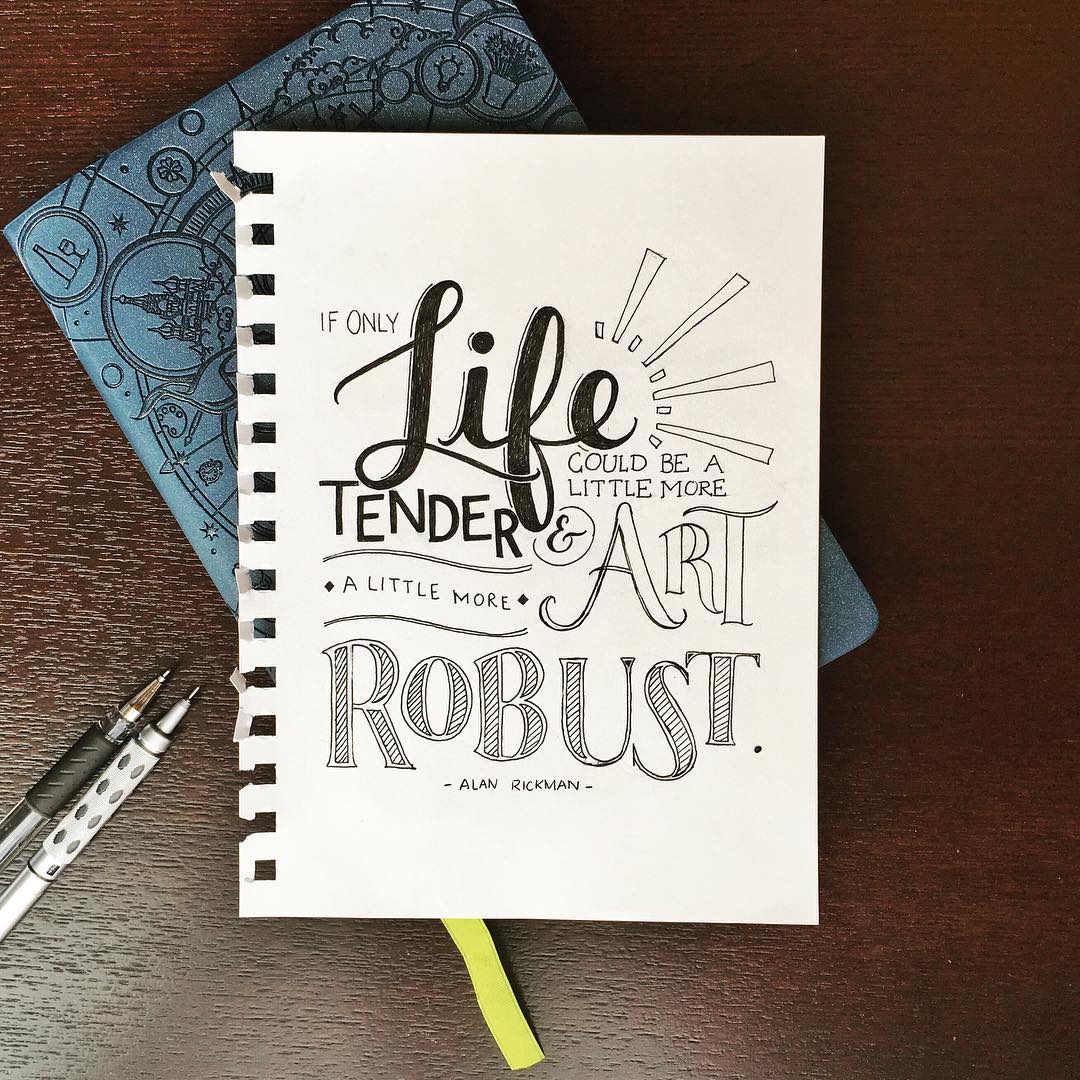 IF ONLY
Life
COULD BE A
LITTLE MORE
TENDER & ART
A LITTLE MORE
ROBUST.
- ALAN RICKMAN -